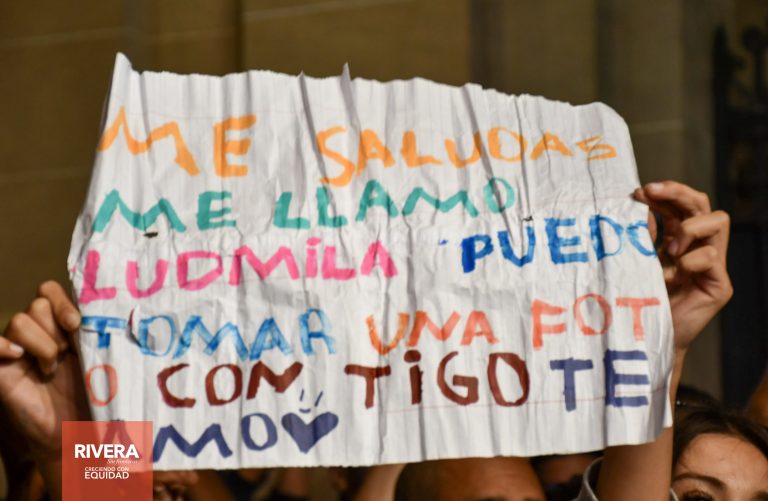 ME SALUDAS
ME LLAMO
LUDMILA PUEDO
TOMAR UNA FOT
O CON TIGO TE
AMO
RIVERA
CRECIENDO CON
EQUIDAD